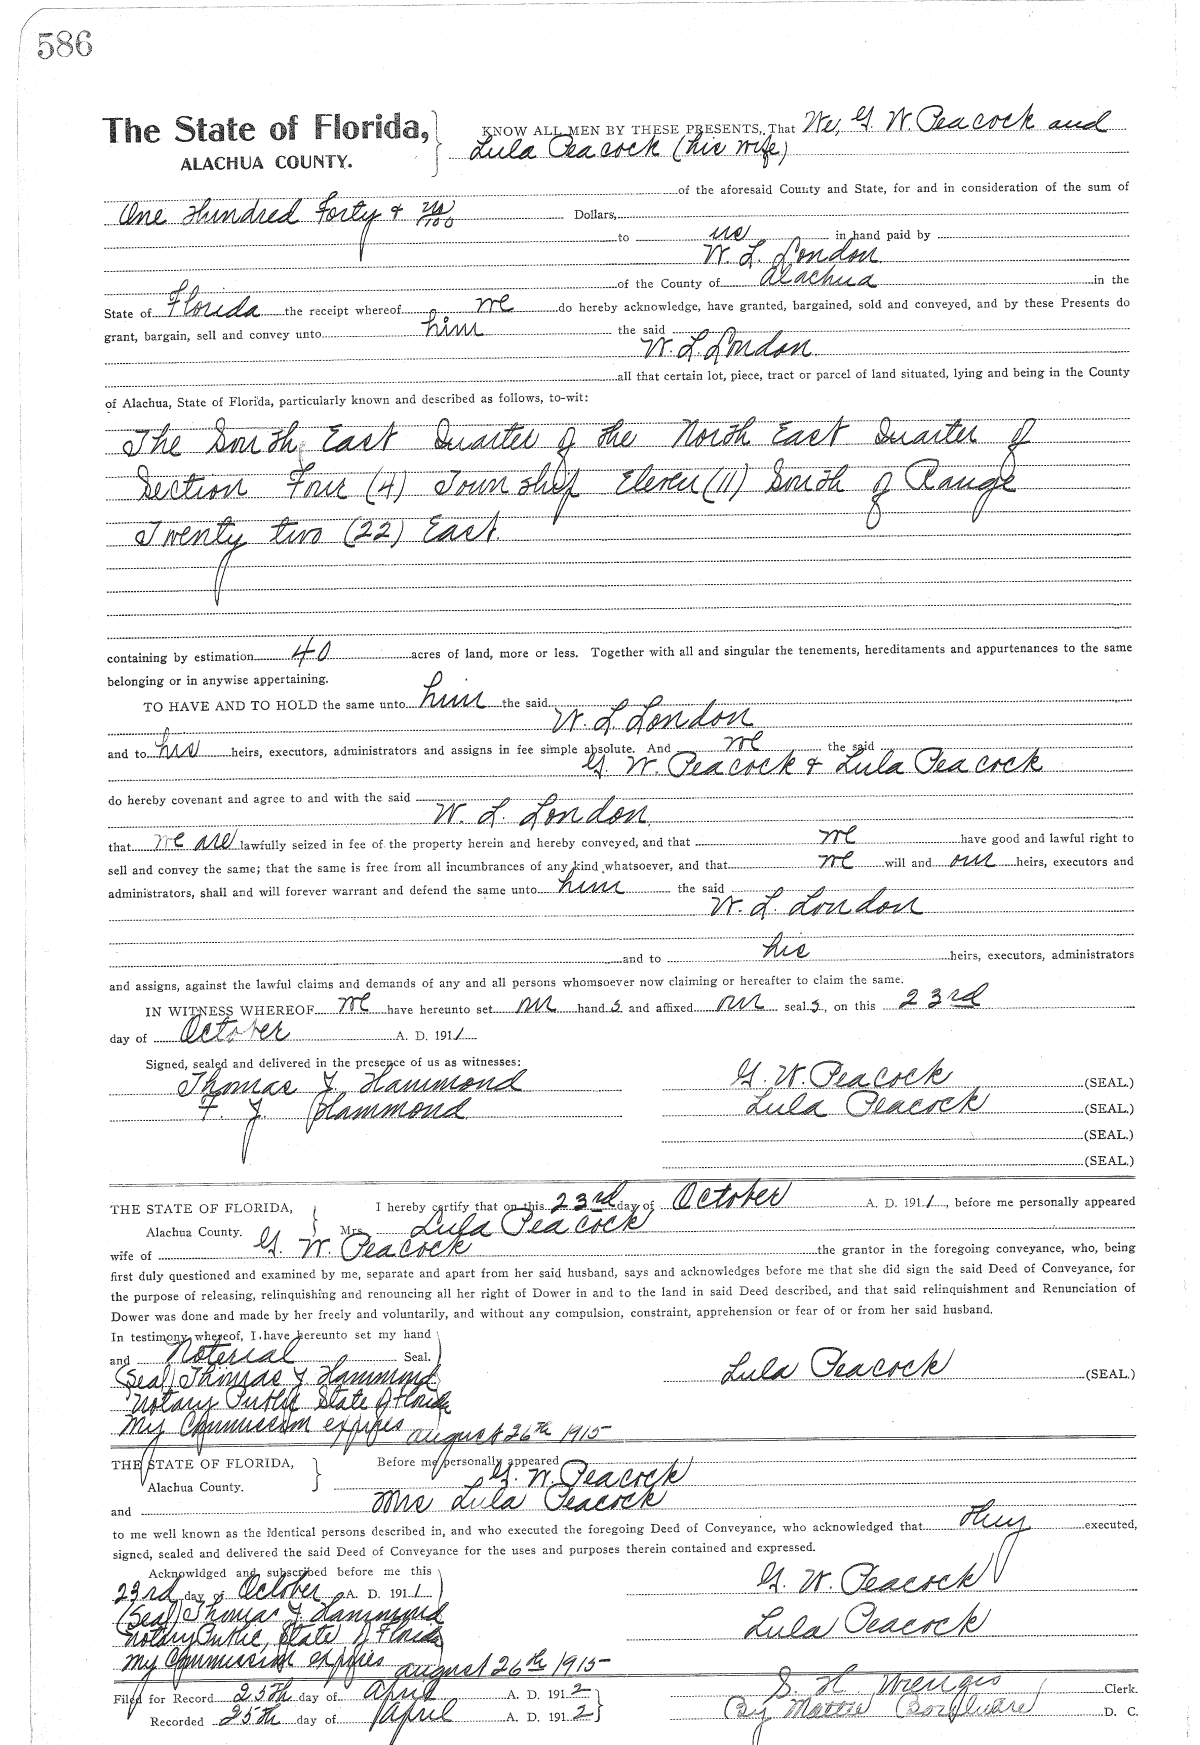 586
The State of Florida, KNOW ALL MEN BY THESE PRESENTS, That We, G. W Peacock and
ALACHUA COUNTY. Lula Peacock (his wife)
of the aforesaid County and State, for and in consideration of the sum of
One Hundred Forty & Dollars,
to us in hand paid by
W. L. London
of the County of Alachua in the
State of Florida the receipt whereof we do hereby acknowledge, have granted, bargained, sold and conveyed, and by these Presents do
grant, bargain, sell and convey unto him the said
W. L London
all that certain lot, piece, tract or parcel of land situated, lying and being in the County
of Alachua, State of Florida, particularly known and described as follows, to-wit:
The South East Quarter of the North East Quarter of
Section Four (4) Township Eleven (11) South of Range
Twenty two (22) East.
containing by estimation 40 acres of land, more or less. Together with all and singular the tenements, hereditaments and appurtenances to the same
belonging or in anywise appertaining.
TO HAVE AND TO HOLD the same unto him the said
W. L London
and to his heirs, executors, administrators and assigns in fee simple absolute. And we the said
G. W. Peacock & Lula Peacock
do hereby covenant and agree to and with the said
W. L. London
that we are lawfully seized in fee of the property herein and hereby conveyed, and that we have good and lawful right to
sell and convey the same; that the same is free from all incumbrances of any kind whatsoever, and that we will and our heirs, executors and
administrators, shall and will forever warrant and defend the same unto him the said
W. L. London
and to his heirs, executors, administrators
and assigns, against the lawful claims and demands of any and all persons whomsoever now claiming or hereafter to claim the same.
IN WITNESS WHEREOF we have hereunto set our hand s and affixed our seal s, on this 23rd
day of October A. D. 1911
Signed, sealed and delivered in the presence of us as witnesses:
Thomas J. Hammond G. W. Peacock (SEAL.)
F. J. Hammond Lula Peacock (SEAL.)
(SEAL.)
(SEAL.)
THE STATE OF FLORIDA, I hereby certify that on this 23rd day of October A. D. 1911, before me personally appeared
Alachua County. Mrs. Lula Peacock
wife of G. W. Peacock the grantor in the foregoing conveyance, who, being
first duly questioned and examined by me, separate and apart from her said husband, says and acknowledges before me that she did sign the said Deed of Conveyance, for
the purpose of releasing, relinquishing and renouncing all her right of Dower in and to the land in said Deed described, and that said relinquishment and Renunciation of
Dower was done and made by her freely and voluntarily, and without any compulsion, constraint, apprehension or fear of or from her said husband.
In testimony whereof, I have hereunto set my hand
and Noterial Seal.
(Seal) Thomas J Hammond Lula Peacock (SEAL.)
Notary Public State of Florida
My Commission expires august 26th 1915
THE STATE OF FLORIDA, Before me personally appeared
Alachua County. G. W. Peacock
and Mrs Lula Peacock
to me well known as the identical persons described in, and who executed the foregoing Deed of Conveyance, who acknowledged that they executed,
signed, sealed and delivered the said Deed of Conveyance for the uses and purposes therein contained and expressed.
Acknowldged and subscribed before me this
23rd day of October A. D. 1911 G. W. Peacock
(Seal) Thomas J Hammond
Notary Public, State of Florida Lula Peacock
My Commission expires august 26th 1915
Filed for Record 25th day of April A. D. 1912 S. H Wienges Clerk.
Recorded 25th day of April A. D. 1912 (By Mattie D. C.